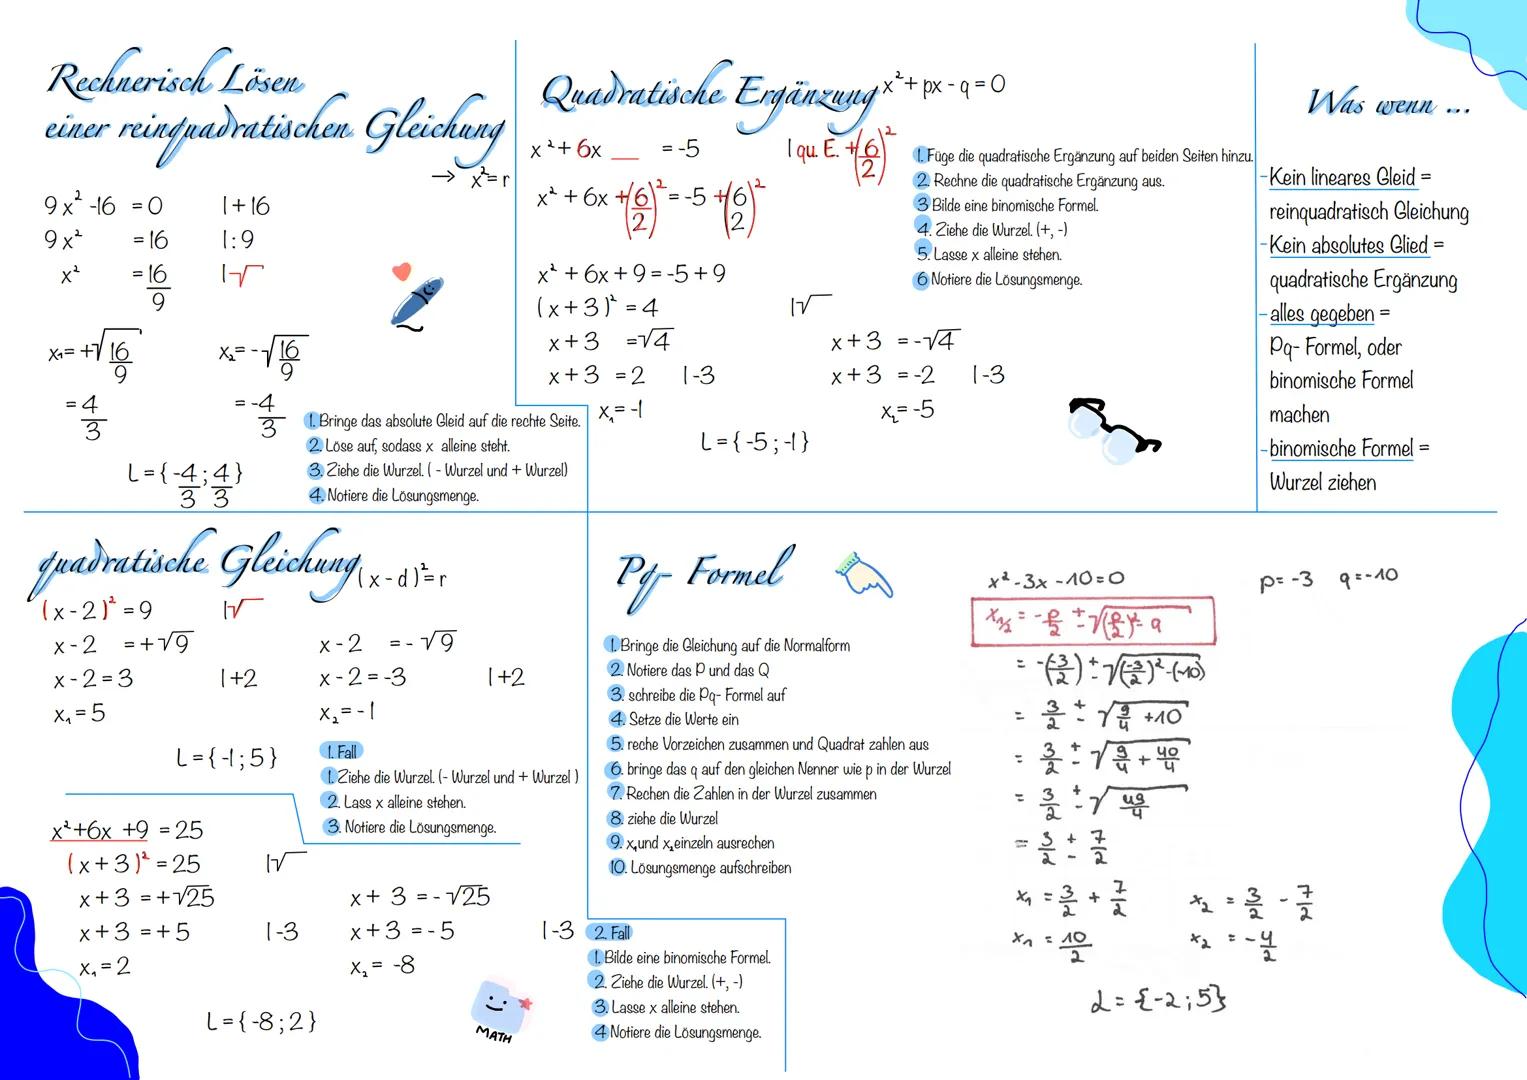 Rechnerisch Lösen
einer reinquadratischen Gleichung
→ x² = r
9x² -16 = 0 |+16
9x² = 16 |:9
x² = 16/9 |√
x₁ = +√16/9 x₂ = -√16/9
= 4/3 = -4/3
L = {-4/3 ; 4/3}
1. Bringe das absolute Gleid auf die rechte Seite.
2. Löse auf, sodass x alleine steht.
3. Ziehe die Wurzel. ( - Wurzel und + Wurzel)
4. Notiere die Lösungsmenge.
Quadratische Ergänzung x² + px - q = 0
x² + 6x __ = -5 | qu. E. +(6/2)²
x² + 6x +(6/2)² = -5 +(6/2)²
x² + 6x + 9 = -5 + 9
(x + 3)² = 4 |√
x + 3 = √4 x + 3 = -√4
x + 3 = 2 |-3 x + 3 = -2 |-3
x₁ = -1 x₂ = -5
L = {-5 ; -1}
1. Füge die quadratische Ergänzung auf beiden Seiten hinzu.
2. Rechne die quadratische Ergänzung aus.
3 Bilde eine binomische Formel.
4. Ziehe die Wurzel. (+, -)
5. Lasse x alleine stehen.
6 Notiere die Lösungsmenge.
Was wenn ...
-Kein lineares Gleid =
reinquadratisch Gleichung
-Kein absolutes Glied =
quadratische Ergänzung
-alles gegeben =
Pq- Formel, oder
binomische Formel
machen
-binomische Formel =
Wurzel ziehen
quadratische Gleichung (x - d)² = r
(x - 2)² = 9 |√
x - 2 = +√9 x - 2 = -√9
x - 2 = 3 |+2 x - 2 = -3 |+2
x₁ = 5 x₂ = -1
L = {-1 ; 5}
1. Fall
1. Ziehe die Wurzel. (- Wurzel und + Wurzel )
2. Lass x alleine stehen.
3. Notiere die Lösungsmenge.
x² + 6x + 9 = 25
(x + 3)² = 25 |√
x + 3 = +√25 x + 3 = -√25
x + 3 = +5 |-3 x + 3 = -5 |-3
x₁ = 2 x₂ = -8
L = {-8 ; 2}
MATH
2. Fall
1. Bilde eine binomische Formel.
2. Ziehe die Wurzel. (+, -)
3. Lasse x alleine stehen.
4 Notiere die Lösungsmenge.
Pq- Formel
1. Bringe die Gleichung auf die Normalform
2. Notiere das P und das Q
3. schreibe die Pq- Formel auf
4. Setze die Werte ein
5. reche Vorzeichen zusammen und Quadrat zahlen aus
6. bringe das q auf den gleichen Nenner wie p in der Wurzel
7. Rechen die Zahlen in der Wurzel zusammen
8. ziehe die Wurzel
9. x₁ und x₂ einzeln ausrechen
10. Lösungsmenge aufschreiben
x² - 3x - 10 = 0 p = -3 q = -10
x₁/₂ = -p/2 ± √(p/2)² - q
= -(-3/2) ± √(-3/2)² - (-10)
= 3/2 ± √9/4 + 10
= 3/2 ± √9/4 + 40/4
= 3/2 ± √49/4
= 3/2 ± 7/2
x₁ = 3/2 + 7/2 x₂ = 3/2 - 7/2
x₁ = 10/2 x₂ = -4/2
L = {-2 ; 5}